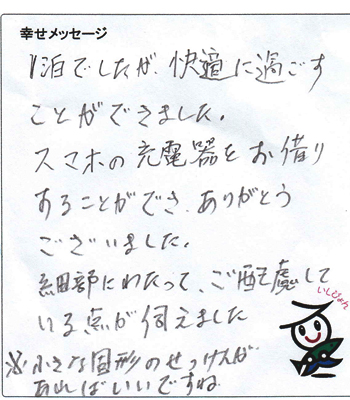 幸せメッセージ
1泊でしたが、快適に過ごす
ことができました。
スマホの充電器をお借り
することができ、ありがとう
ございました。
細部にわたって、ご配慮して
いる点が伺えました
※小さな固形のせっけんが
あればいいですね